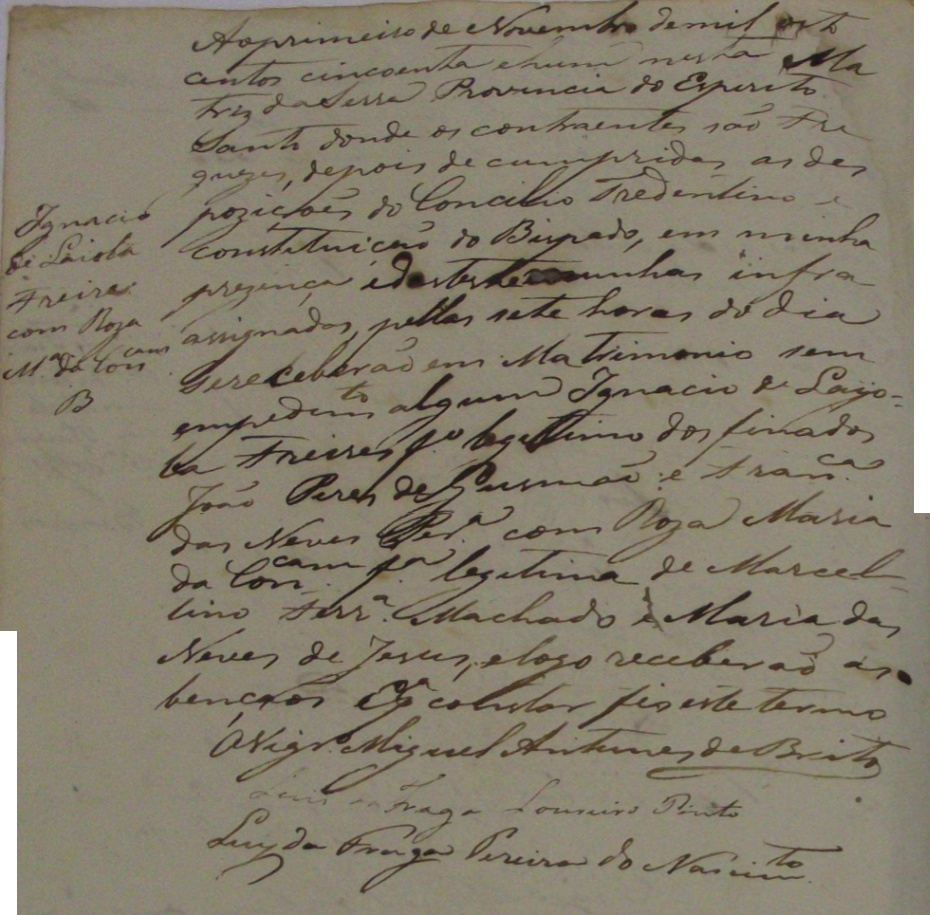 Ignacio
de Laiola
Freire
com Roza
M.ª da Con
cam
B
Ao primeiro de Novembro de mil oito
centos cincoenta e hum nesta Ma
triz da Serra Provincia do Espirito
Santo donde os contraentes são Fre
guezes, depois de cumpridas as des
poziçoẽs do Concilio Tredentino e
constituição do Bispado, em minha
prezença e das testemunhas infra
assignadas, pellas sete horas do dia
se receberaõ em Matrimonio sem
empedimto algum Ignacio de Layo-
la Freires fo legitimo dos finados
João Peres de Gusmaõ e Franca
das Neves Per.ª com Roza Maria
da Concam fa legitima de Marcel-
lino Ferr.ª Machado e Maria das
Neves de Jesus, e logo receberaõ as
bençaos E pa constar fis este termo
O Vigro Miguel Antunes de Brito
Luis da Fraga Loureiro Pinto
Luiz da Fraga Pereira do Nascimto